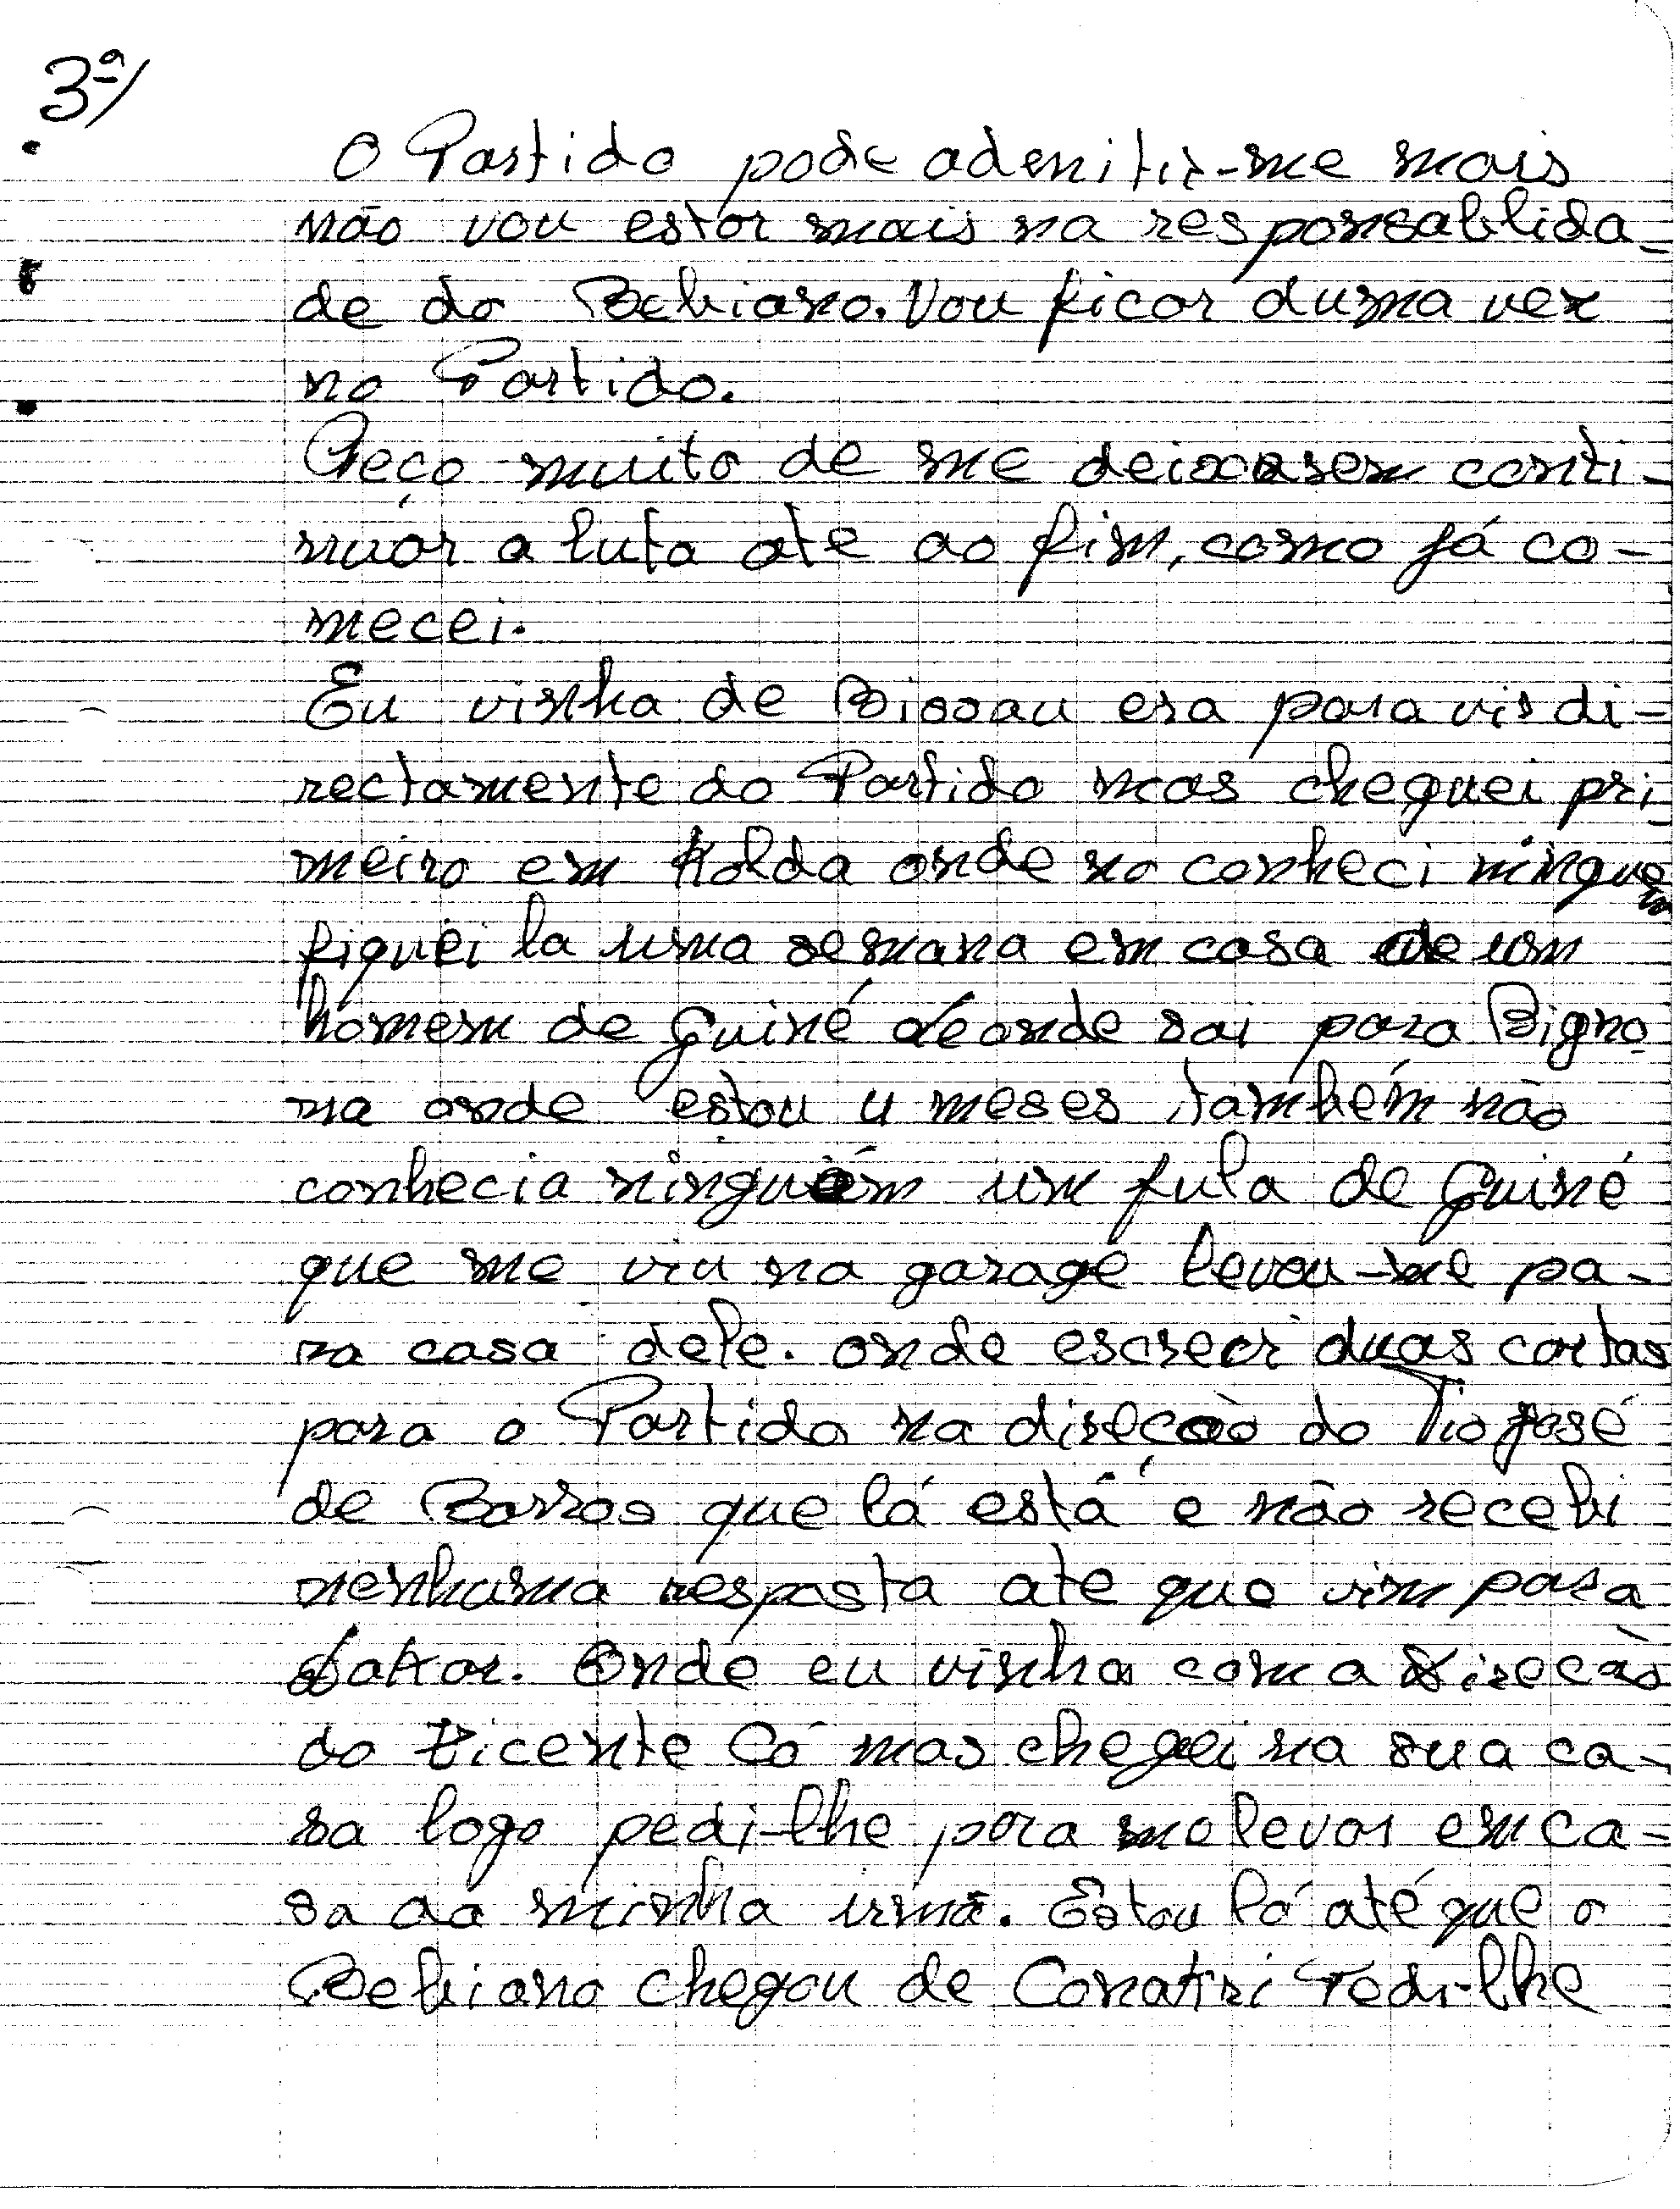 3ª/
O Partido pode ademitir-me mais
não vou estar mais na responsablida-
de do Bebiano. Vou ficar duma vez
no Partido.
Peço muito de me deixarem conti-
nuar a luta ate ao fim, como já co-
mecei.
Eu vinha de Bissau era para vir di-
rectamente ao Partido mas cheguei pri-
meiro em Kolda onde no conheci ninguem
fiquei la uma semana em casa de um
homem de Guiné deonde sai para Bigno-
na onde estou 4 meses, também não
conhecia ninguém um fula de Guiné
que me viu na garage levou-me pa-
ra casa dele. onde escrevi duas cartas
para o Partido na direcção do Tio José
de Barros que lá está e não recebi
nenhuma resposta ate que vim para
Dakar. Onde eu vinha com a direcão
do Vicente Có mas cheguei na sua ca-
sa logo pedi-lhe para me levar em ca-
sa da minha irmã. Estou lá até que o
Bebiano chegou de Conakri Pedi-lhe